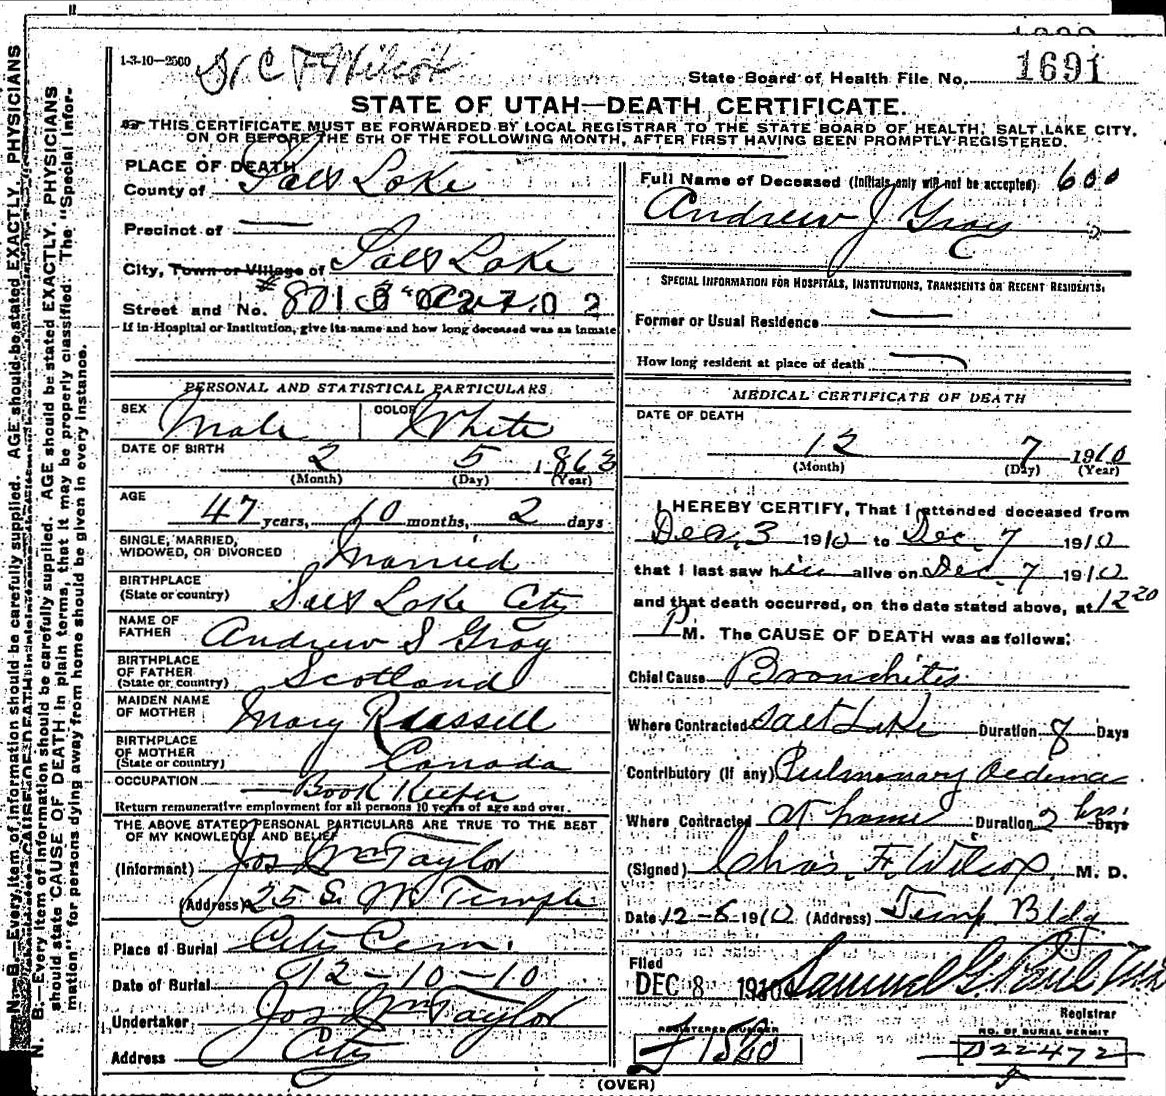 1-3-10—2500
Dr C F Wilcox
State Board of Health File No. 1691
STATE OF UTAH—DEATH CERTIFICATE.
THIS CERTIFICATE MUST BE FORWARDED BY LOCAL REGISTRAR TO THE STATE BOARD OF HEALTH, SALT LAKE CITY,
ON OR BEFORE THE 5TH OF THE FOLLOWING MONTH, AFTER FIRST HAVING BEEN PROMPTLY REGISTERED.
PLACE OF DEATH
County of Salt Lake
Precinct of —
City, Town or Village of Salt Lake
Street and No. #801 3rd Ave
If in Hospital or Institution, give its name and how long deceased was an inmate
PERSONAL AND STATISTICAL PARTICULARS
SEX Male COLOR White
DATE OF BIRTH 2 5 1863
(Month) (Day) (Year)
AGE 47 years, 10 months, 2 days
SINGLE, MARRIED,
WIDOWED, OR DIVORCED Married
BIRTHPLACE
(State or country) Salt Lake City
NAME OF
FATHER Andrew S Gray
BIRTHPLACE
OF FATHER
(State or country) Scotland
MAIDEN NAME
OF MOTHER Mary Russell
BIRTHPLACE
OF MOTHER
(State or country) Canada
OCCUPATION Book Keeper
Return remunerative employment for all persons 10 years of age and over.
THE ABOVE STATED PERSONAL PARTICULARS ARE TRUE TO THE BEST
OF MY KNOWLEDGE AND BELIEF
(Informant) Jos Wm Taylor
(Address) 25 S. W Temple
Place of Burial City Cem.
Date of Burial 12-10-10
Undertaker Jos Wm Taylor
Address City
Full Name of Deceased (Initials only will not be accepted) 600
Andrew J Gray
SPECIAL INFORMATION FOR HOSPITALS, INSTITUTIONS, TRANSIENTS OR RECENT RESIDENTS:
Former or Usual Residence —
How long resident at place of death —
MEDICAL CERTIFICATE OF DEATH
DATE OF DEATH
12 7 1910
(Month) (Day) (Year)
I HEREBY CERTIFY, That I attended deceased from
Dec. 3 1910 to Dec. 7 1910
that I last saw him alive on Dec. 7 1910
and that death occurred, on the date stated above, at 12 20
P M. The CAUSE OF DEATH was as follows:
Chief Cause Bronchitis
Where Contracted Salt Lake Duration 8 Days
Contributory (if any) Pulmonary Oedema
Where Contracted at home Duration 2 hrs. Days
(Signed) Chas. F. Wilcox, M. D.
Date 12-8-1910 (Address) Temp Bldg
Filed
DEC 8 1910 Samuel G. Paul
Registrar
REGISTERED NUMBER
NO. OF BURIAL PERMIT
D22472
(OVER)
N. B.—Every item of information should be carefully supplied. AGE should be stated EXACTLY. PHYSICIANS
should state CAUSE OF DEATH in plain terms, that it may be properly classified. The "Special Infor-
mation" for persons dying away from home should be given in every instance.